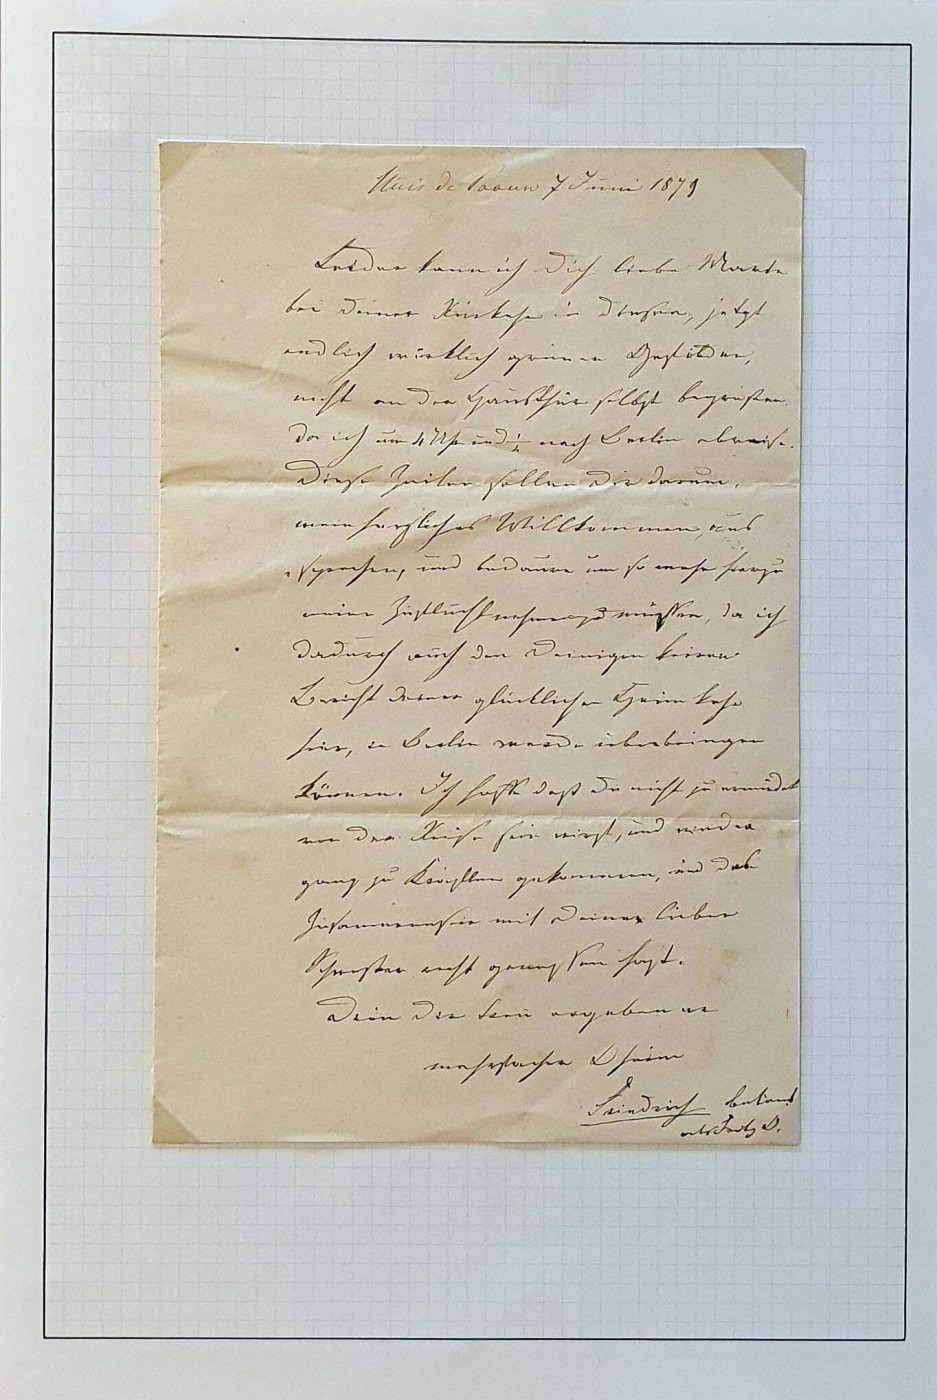 Huis de Paauw 7 Juni 1879
Leider kann ich Dich liebe Marie
bei Deiner Rückkehr in diesen, jetzt
endlich wirklich grünen Gefilden,
nicht an der Hausthür selbst begrüßen.
da ich um 4 Uhr und ¼ nach Berlin abreise.
Diese Zeilen sollen Dir darum,
mein herzliches Willkommen, aus
sprechen, und bedaure um so mehr hierzu
meine Zuflucht nehmen zu müssen, da ich
dadurch auch den Deinigen keinen
Bericht Deiner glücklichen Heimkehr
hier, in Berlin werde überbringen
können. Ich hoffe daß Du nicht zu ermüdet
von der Reise sein wirst, und wieder
ganz zu Kräften gekommen, und das
Zusammensein mit Deiner lieben
Schwester recht genossen hast.
Dein Dir treu ergebener
mehrfacher Oheim
Friedrich bekannt
als Fritz O.